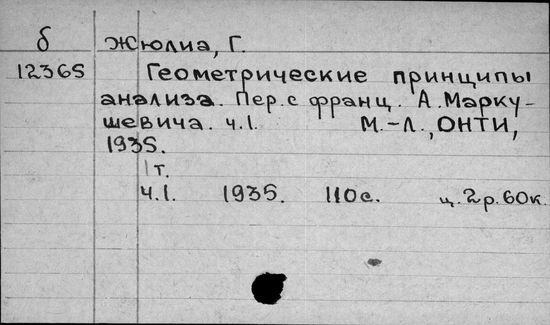 б Жюлиа, Г.
12365 Геометрические принципы
анализа. Пер. с франц. А. Марку-
шевича. ч.1. М.-Л., ОНТИ,
1935.
1 т.
ч.1. 1935. 110 с. ц. 2 р. 60 к.